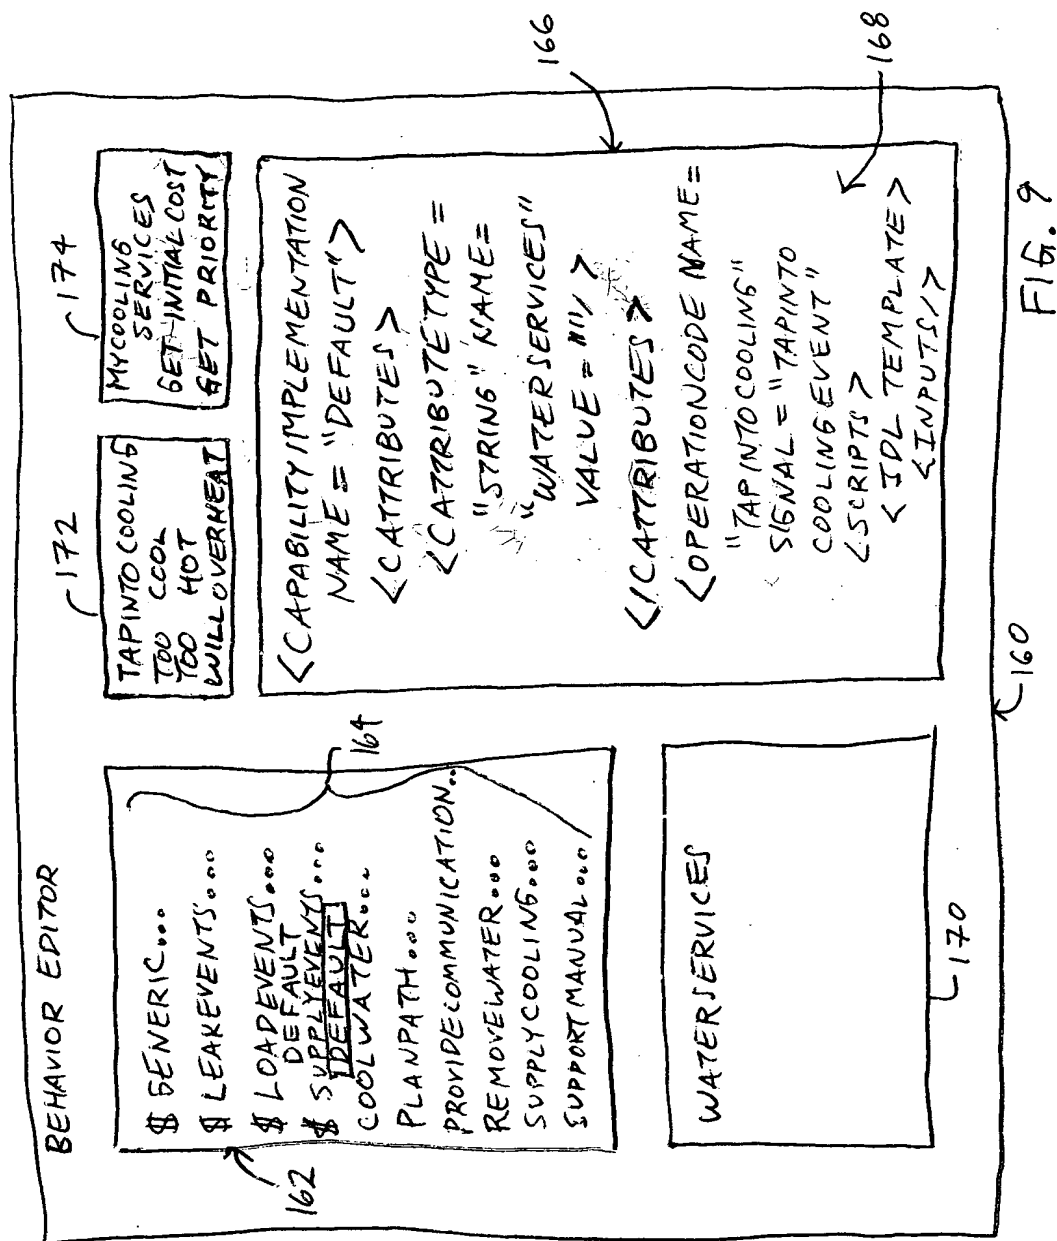 BEHAVIOR EDITOR
162
$ GENERIC...
$ LEAKEVENTS...
$ LOADEVENTS...
DEFAULT
$ SUPPLYEVENTS...
DEFAULT
COOLWATER...
PLANPATH...
PROVIDECOMMUNICATION...
REMOVEWATER...
SUPPLYCOOLING...
SUPPORT MANUAL...
164
172
TAPINTOCOOLING
TOO COOL
TOO HOT
WILLOVERHEAT
174
MYCOOLING
SERVICES
GET-INITIAL COST
GET PRIORITY
<CAPABILITY IMPLEMENTATION
NAME = "DEFAULT">
<CATTRIBUTES>
<CATTRIBUTE TYPE =
"STRING" NAME=
"WATERSERVICES"
VALUE = ""/>
</CATTRIBUTES>
<OPERATIONCODE NAME=
"TAPINTOCOOLING"
SIGNAL = "TAPINTO
COOLING EVENT"
<SCRIPTS>
<IDL TEMPLATE>
<INPUTS/>
166
168
WATERSERVICES
170
160
FIG. 9